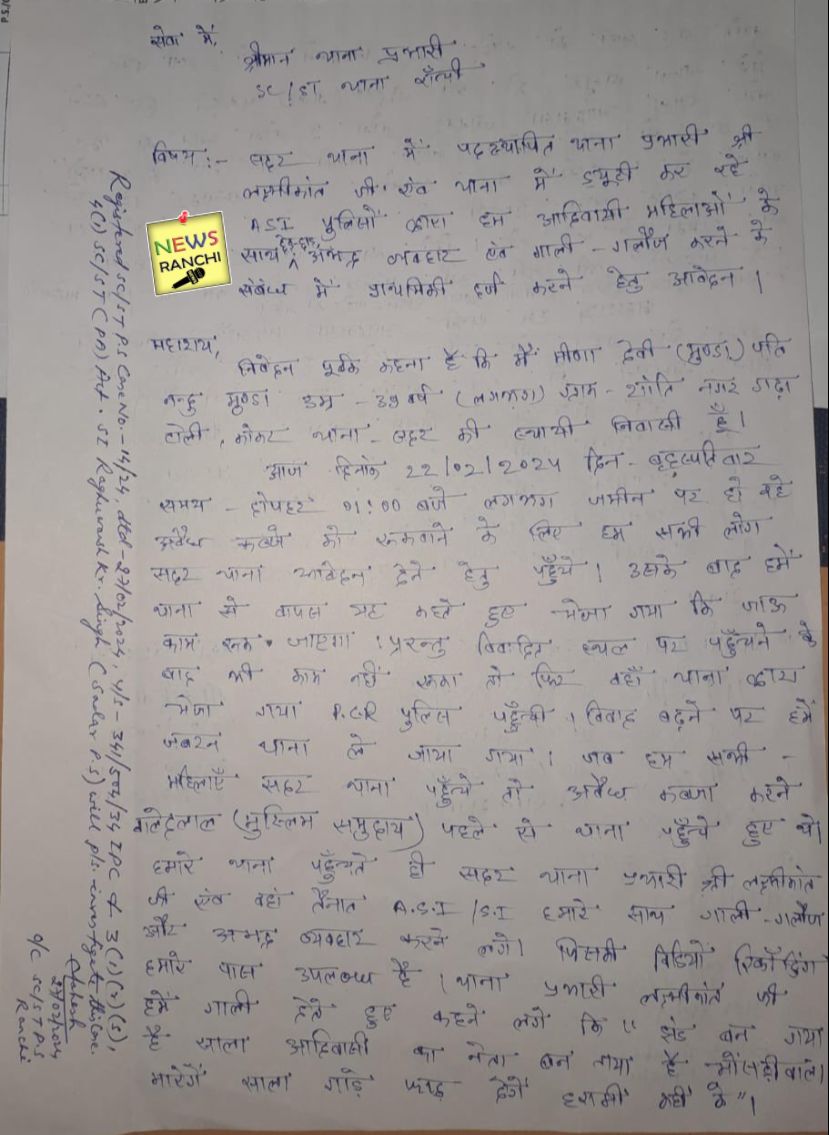 सेवा में,
श्रीमान थाना प्रभारी
SC/ST थाना राँची
विषय :- सदर थाना में पदस्थापित थाना प्रभारी श्री
लक्ष्मीकांत जी एंव थाना में ड्यूटी कर रहे
ASI पुलिसों द्वारा हम आदिवासी महिलाओं के
साथ अभद्र व्यवहार एंव गाली-गलौज करने के
संबंध में प्राथमिकी दर्ज करने हेतु आवेदन।
NEWS
RANCHI
महाशय,
निवेदन पूर्वक कहना है कि मैं मीणा देवी (मुण्डा) पति
नन्दु मुण्डा उम्र - 39 वर्ष (लगभग) ग्राम - शांति नगर गाढ़ा
टोली, कोकर थाना - सदर की स्थायी निवासी हूँ।
आज दिनांक 22/02/2024 दिन - बृहस्पतिवार
समय - दोपहर 01:00 बजे लगभग जमीन पर हो रहे
अवैध कब्जे को रूकवाने के लिए हम सभी लोग
सदर थाना आवेदन देने हेतु पहुँचे। उसके बाद हमें
थाना से वापस यह कहते हुए भेजा गया कि जाऊ
काम रूक जाएगा। परन्तु विवादित स्थल पर पहुँचने के
बाद भी काम नहीं रूका तो फिर वहाँ थाना द्वारा
भेजा गया P.C.R पुलिस पहुँची। विवाद बढ़ने पर हमें
जबरन थाना ले जाया गया। जब हम सभी -
महिलाएँ सदर थाना पहुँचे तो अवैध कब्जा करने
(मुस्लिम समुदाय) पहले से थाना पहुँचे हुए थे।
हमारे थाना पहुँचते ही सदर थाना प्रभारी श्री लक्ष्मीकांत
जी एंव वहां तैनात A.S.I/S.I हमारे साथ गाली-गलौज
और अभद्र व्यवहार करने लगे। जिसकी विडियों रिकॉर्डिंग
हमारे पास उपलब्ध है। थाना प्रभारी लक्ष्मीकांत जी
हमें गाली देते हुए कहने लगे कि "सांड बन गया
है साला आदिवासी का नेता बन गया है भोंसड़ीवाले।
मारेगें साला गांडे फाड़ देगें हरामी कहीं के"।
Registered SC/ST P.S Case No.-14/24, dtd-27/02/2024, u/s-341/504/34 IPC & 3(1)(r)(s),
4(1) SC/ST (PA) Act. SI Raghuvansh Kr. Singh (Sadar P.S) will pls. investigate this case
27/02/2024
O/C SC/ST P.S
Ranchi